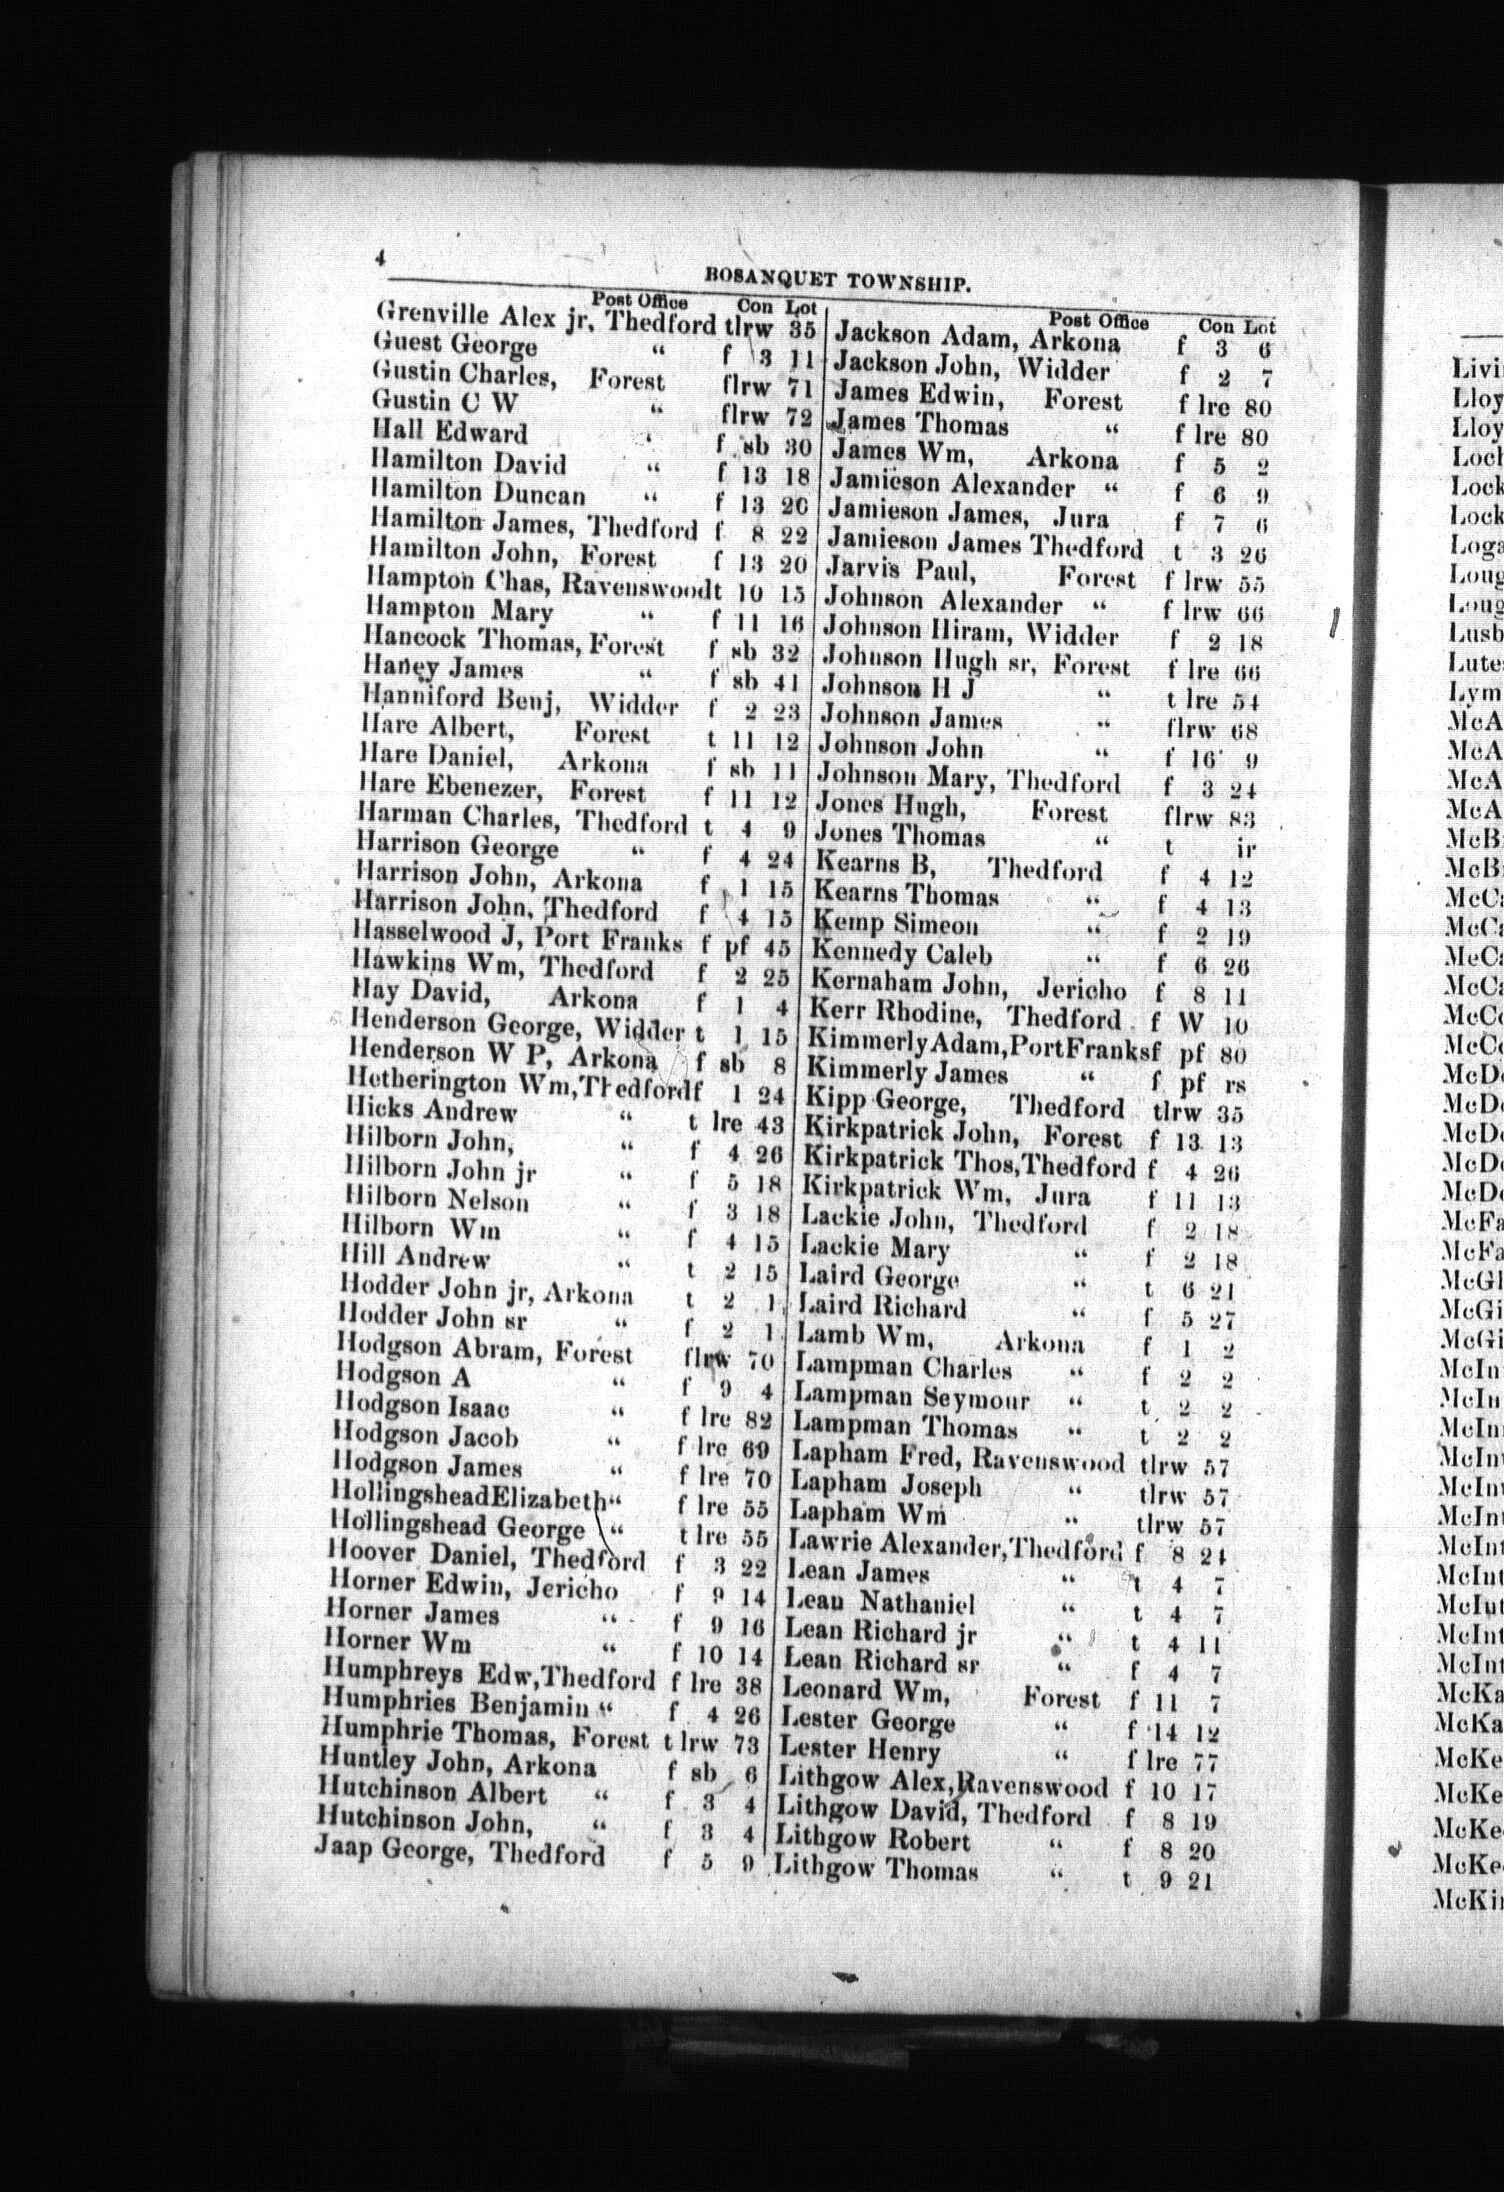 4
BOSANQUET TOWNSHIP.
Post Office Con Lot
Grenville Alex jr, Thedford tlrw 35
Guest George " f 3 11
Gustin Charles, Forest flrw 71
Gustin C W " flrw 72
Hall Edward " f sb 30
Hamilton David " f 13 18
Hamilton Duncan " f 13 20
Hamilton James, Thedford f 8 22
Hamilton John, Forest f 13 20
Hampton Chas, Ravenswoodt 10 15
Hampton Mary " f 11 16
Hancock Thomas, Forest f sb 32
Haney James " f sb 41
Hanniford Benj, Widder f 2 23
Hare Albert, Forest t 11 12
Hare Daniel, Arkona f sb 11
Hare Ebenezer, Forest f 11 12
Harman Charles, Thedford t 4 9
Harrison George " f 4 24
Harrison John, Arkona f 1 15
Harrison John, Thedford f 4 15
Hasselwood J, Port Franks f pf 45
Hawkins Wm, Thedford f 2 25
Hay David, Arkona f 1 4
Henderson George, Widder t 1 15
Henderson W P, Arkona f sb 8
Hetherington Wm,Thedfordf 1 24
Hicks Andrew " t lre 43
Hilborn John, " f 4 26
Hilborn John jr " f 5 18
Hilborn Nelson " f 3 18
Hilborn Wm " f 4 15
Hill Andrew " t 2 15
Hodder John jr, Arkona t 2 1
Hodder John sr " f 2 1
Hodgson Abram, Forest flrw 70
Hodgson A " f 9 4
Hodgson Isaac " f lre 82
Hodgson Jacob " f lre 69
Hodgson James " f lre 70
HollingsheadElizabeth" f lre 55
Hollingshead George " t lre 55
Hoover Daniel, Thedford f 3 22
Horner Edwin, Jericho f 9 14
Horner James " f 9 16
Horner Wm " f 10 14
Humphreys Edw,Thedford f lre 38
Humphries Benjamin " f 4 26
Humphrie Thomas, Forest t lrw 73
Huntley John, Arkona f sb 6
Hutchinson Albert " f 3 4
Hutchinson John, " f 3 4
Jaap George, Thedford f 5 9
Post Office Con Lot
Jackson Adam, Arkona f 3 6
Jackson John, Widder f 2 7
James Edwin, Forest f lre 80
James Thomas " f lre 80
James Wm, Arkona f 5 2
Jamieson Alexander " f 6 9
Jamieson James, Jura f 7 6
Jamieson James Thedford t 3 26
Jarvis Paul, Forest f lrw 55
Johnson Alexander " f lrw 66
Johnson Hiram, Widder f 2 18
Johnson Hugh sr, Forest f lre 66
Johnson H J " t lre 54
Johnson James " flrw 68
Johnson John " f 16 9
Johnson Mary, Thedford f 3 24
Jones Hugh, Forest flrw 83
Jones Thomas " t ir
Kearns B, Thedford f 4 12
Kearns Thomas " f 4 13
Kemp Simeon " f 2 19
Kennedy Caleb " f 6 26
Kernaham John, Jericho f 8 11
Kerr Rhodine, Thedford f W 10
KimmerlyAdam,PortFranksf pf 80
Kimmerly James " f pf rs
Kipp George, Thedford tlrw 35
Kirkpatrick John, Forest f 13 13
Kirkpatrick Thos,Thedford f 4 26
Kirkpatrick Wm, Jura f 11 13
Lackie John, Thedford f 2 18
Lackie Mary " f 2 18
Laird George " t 6 21
Laird Richard " f 5 27
Lamb Wm, Arkona f 1 2
Lampman Charles " f 2 2
Lampman Seymour " t 2 2
Lampman Thomas " t 2 2
Lapham Fred, Ravenswood tlrw 57
Lapham Joseph " tlrw 57
Lapham Wm " tlrw 57
Lawrie Alexander,Thedford f 8 24
Lean James " t 4 7
Lean Nathaniel " t 4 7
Lean Richard jr " t 4 11
Lean Richard sr " f 4 7
Leonard Wm, Forest f 11 7
Lester George " f 14 12
Lester Henry " f lre 77
Lithgow Alex,Ravenswood f 10 17
Lithgow David, Thedford f 8 19
Lithgow Robert " f 8 20
Lithgow Thomas " t 9 21